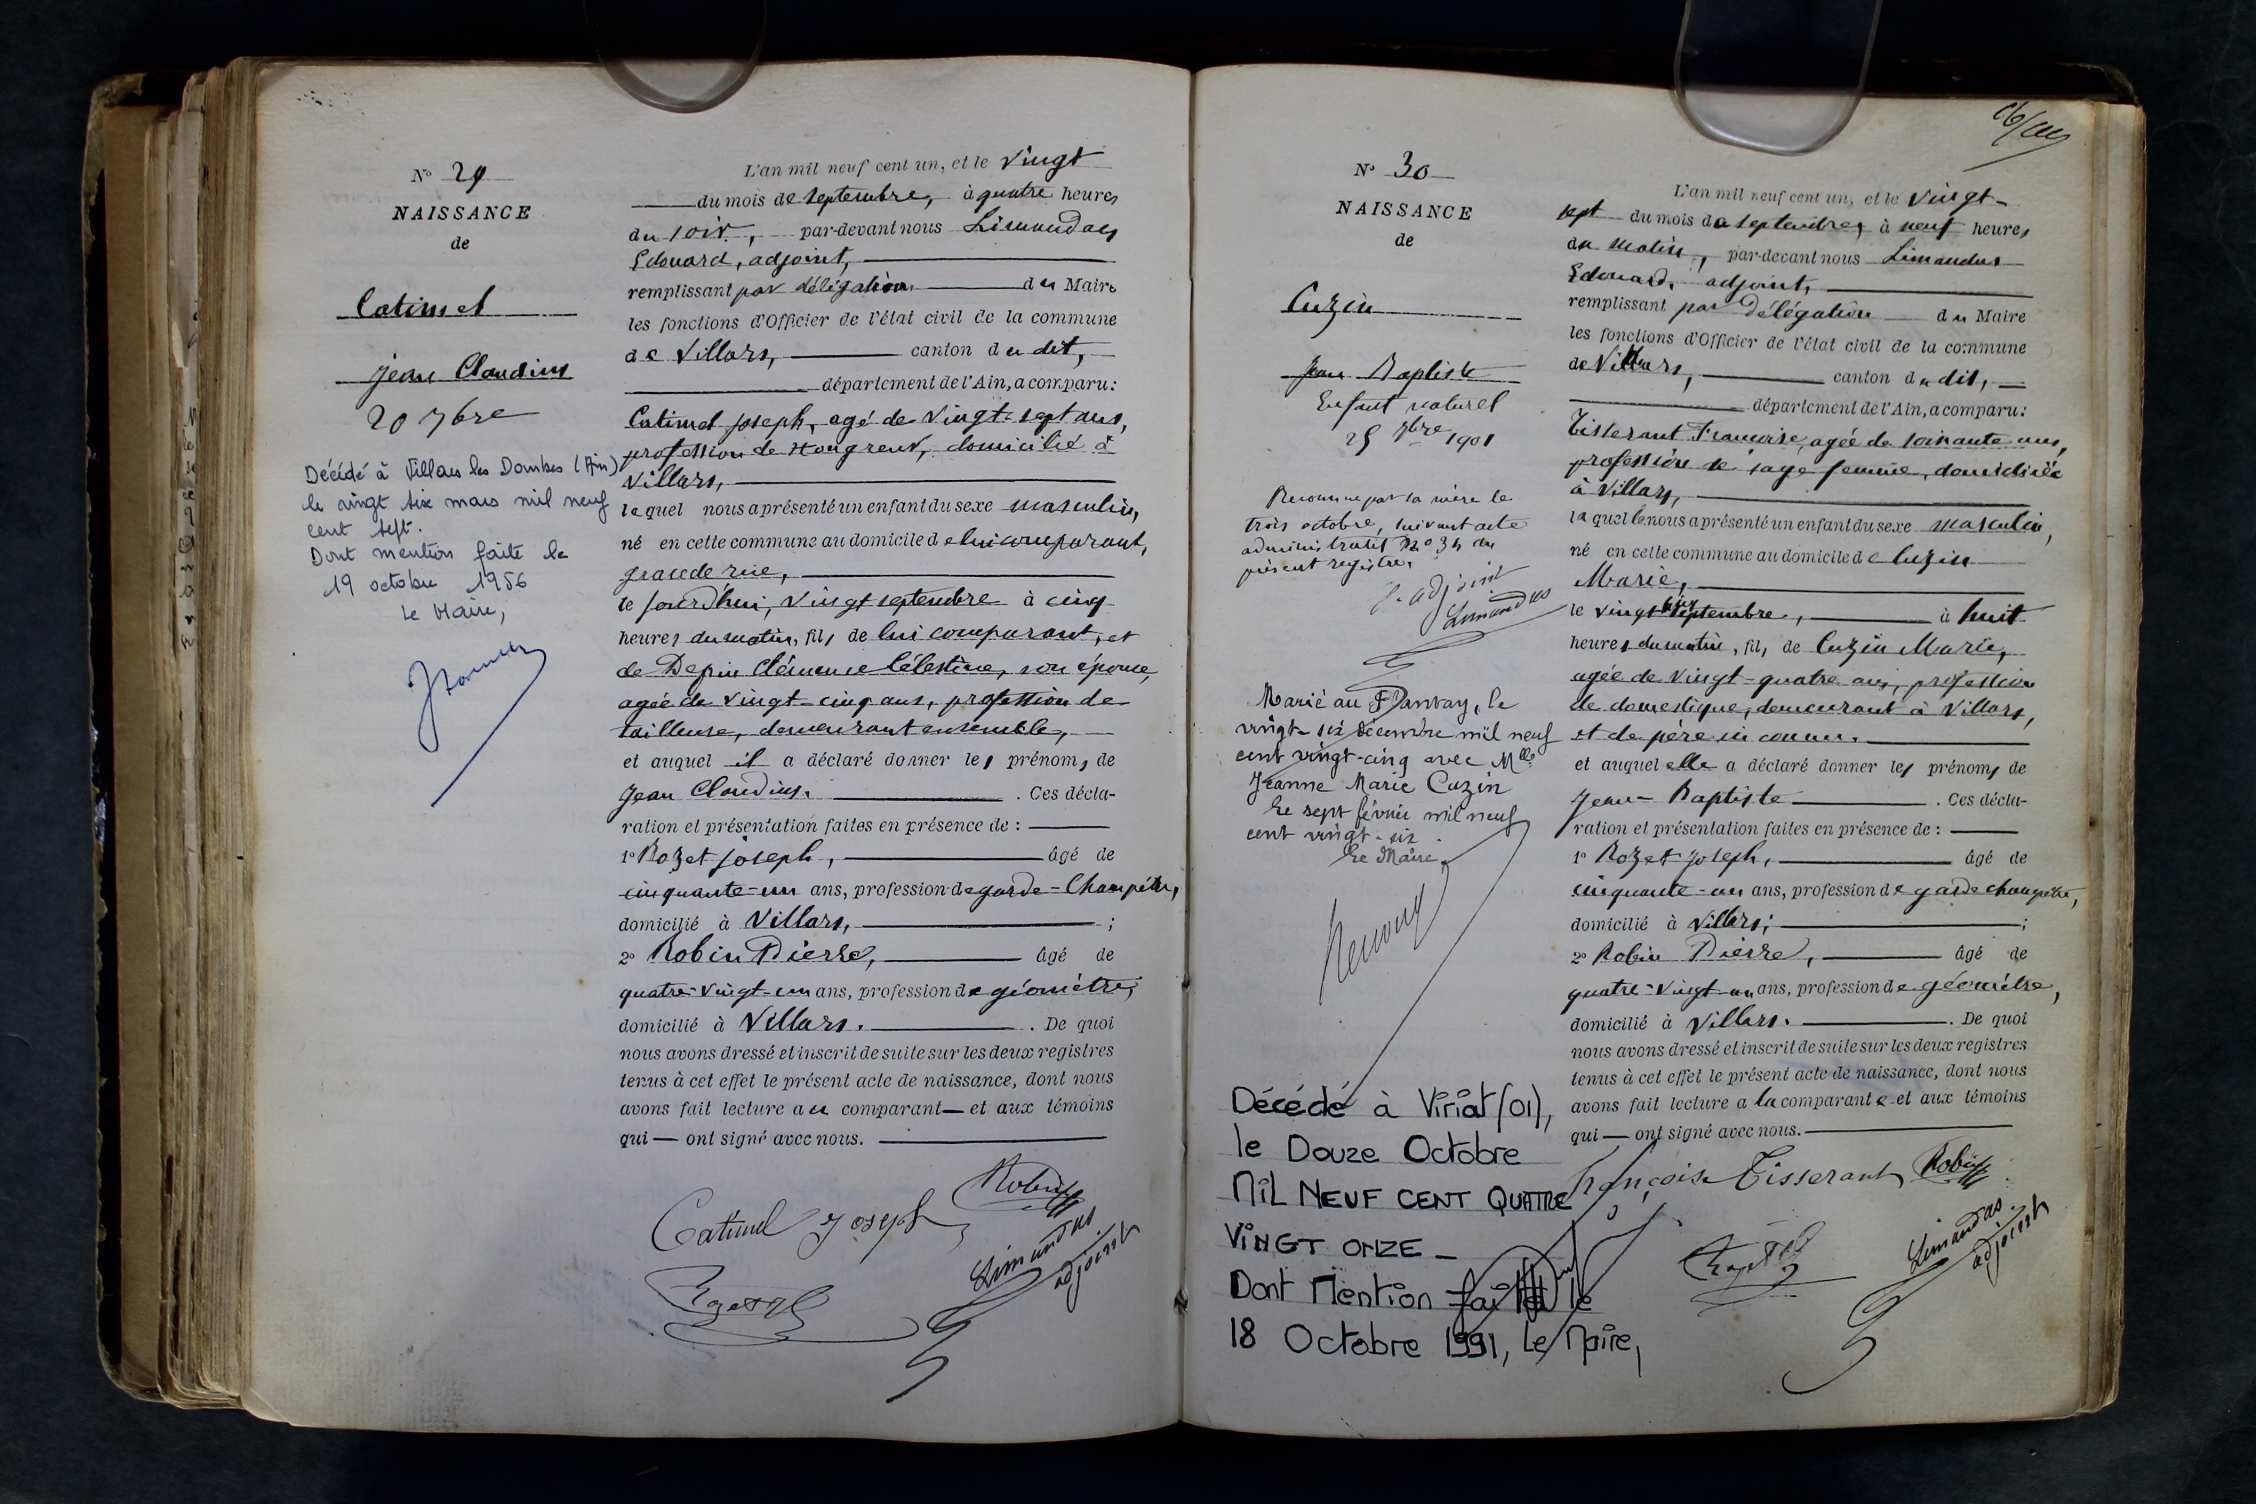 N° 29
NAISSANCE
de
Catimel
Jean Claudius
20 7bre
Décédé à Villars les Dombes (Ain)
le vingt six mars mil neuf
cent sept.
Dont mention faite le
19 octobre 1956
Le Maire,
L'an mil neuf cent un, et le vingt
du mois de septembre, à quatre heures
du soir, par-devant nous Limandas
Edouard, adjoint,
remplissant par délégation du Maire
les fonctions d'Officier de l'état civil de la commune
de Villars, canton du dit,
département de l'Ain, a comparu:
Catimel Joseph, agé de vingt-sept ans,
profession de Hongreur, domicilié à
Villars,
lequel nous a présenté un enfant du sexe masculin,
né en cette commune au domicile de lui comparant,
grande rue,
le jourd'hui, vingt septembre à cinq
heures du matin, fils de lui comparant, et
de Depin Clémence Célestine, son épouse,
agée de vingt-cinq ans, profession de
tailleuse, demeurant ensemble,
et auquel il a déclaré donner les prénoms de
Jean Claudius. Ces décla-
ration et présentation faites en présence de :
1° Rozet Joseph, âgé de
cinquante-un ans, profession de garde-Champêtre,
domicilié à Villars, ;
2° Robin Pierre, âgé de
quatre-vingt-un ans, profession de géomètre,
domicilié à Villars. . De quoi
nous avons dressé et inscrit de suite sur les deux registres
tenus à cet effet le présent acte de naissance, dont nous
avons fait lecture au comparant et aux témoins
qui ont signé avec nous.
Robin
Catimel Joseph
Limandas
adjoint
Rozet
N° 30
NAISSANCE
de
Cuzin
Jean Baptiste
Enfant naturel
25 7bre 1901
Reconnu par sa mère le
trois octobre, suivant acte
administratif N° 34 du
présent registre.
L'adjoint
Limandas
Marié au Plantay, le
vingt-six décembre mil neuf
cent vingt-cinq avec Mlle
Jeanne Marie Cuzin
Le sept février mil neuf
cent vingt-six
Le Maire.
Décédé à Viriat (01),
le Douze Octobre
MIL NEUF CENT QUATRE
VINGT ONZE -
Dont Mention faite le
18 Octobre 1991, Le Maire,
L'an mil neuf cent un, et le vingt-
sept du mois de septembre, à neuf heures
du matin, par-devant nous Limandas
Edouard, adjoint,
remplissant par délégation du Maire
les fonctions d'Officier de l'état civil de la commune
de Villars, canton du dit,
département de l'Ain, a comparu:
Tisserant Françoise, agée de soixante ans,
profession de sage femme, domiciliée
à Villars,
laquelle nous a présenté un enfant du sexe masculin,
né en cette commune au domicile de Cuzin
Marie,
le vingt cinq septembre, à huit
heures du matin, fils de Cuzin Marie,
agée de vingt-quatre ans, profession
de domestique, demeurant à Villars,
et de père inconnu.
et auquel elle a déclaré donner les prénoms de
Jean-Baptiste . Ces décla-
ration et présentation faites en présence de :
1° Rozet Joseph, âgé de
cinquante-un ans, profession de garde champêtre,
domicilié à Villars; ;
2° Robin Pierre, âgé de
quatre-vingt-un ans, profession de géomètre,
domicilié à Villars. . De quoi
nous avons dressé et inscrit de suite sur les deux registres
tenus à cet effet le présent acte de naissance, dont nous
avons fait lecture a la comparante et aux témoins
qui ont signé avec nous.
Françoise Tisserant Robin
Limandas
adjoint
Rozet